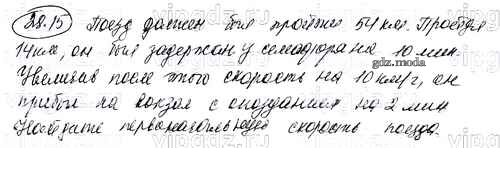 28.15 Поезд должен был пройти 54 км. Пройдя
14 км, он был задержан у семафора на 10 мин.
gdz.moda
Увеличив после этого скорость на 10 км/ч, он
прибыл на вокзал с опозданием на 2 мин
Найдите первоначальную скорость поезда.